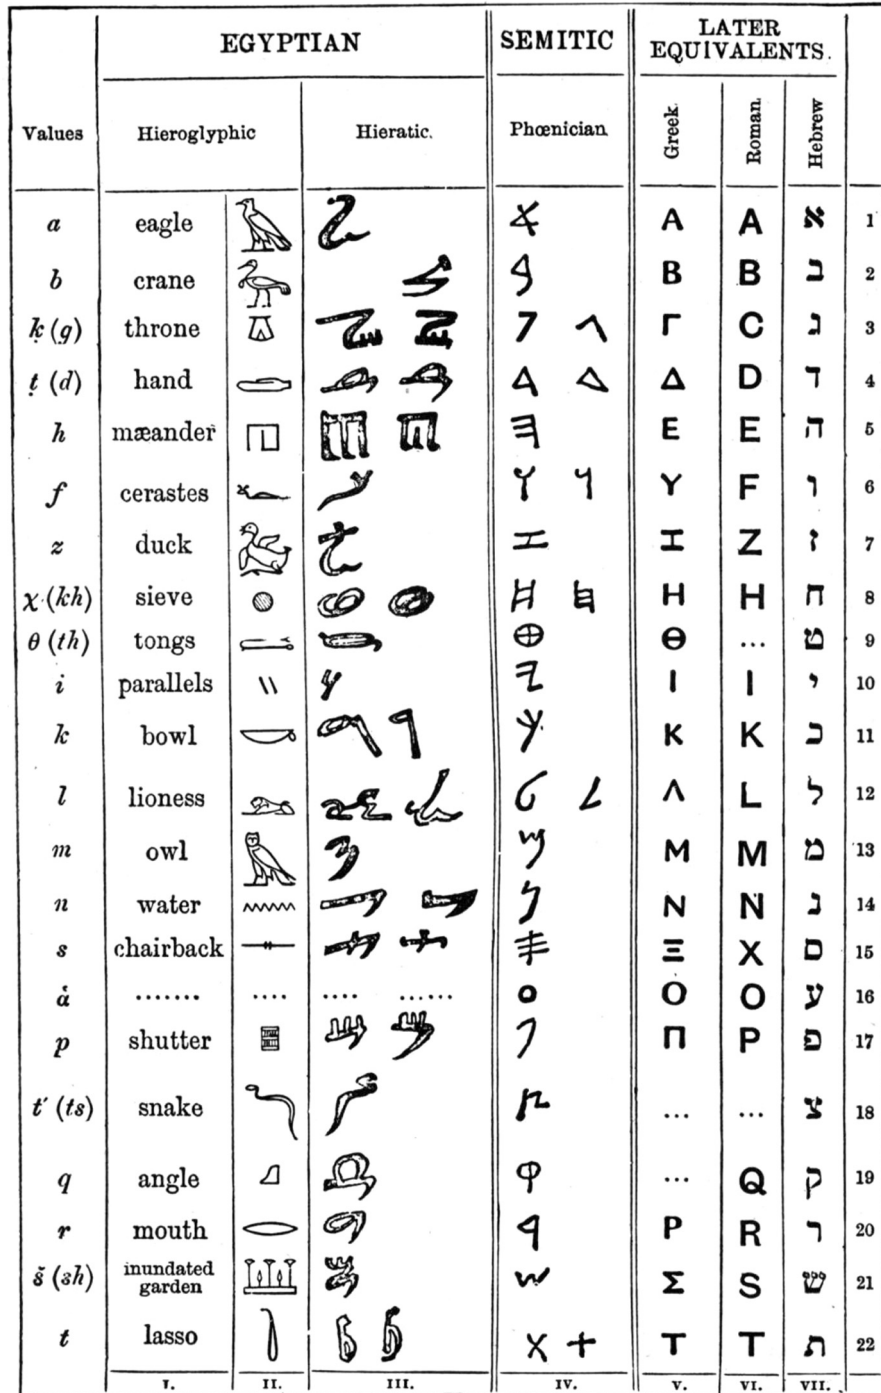 EGYPTIAN SEMITIC LATER EQUIVALENTS.
Values Hieroglyphic Hieratic. Phœnician Greek. Roman. Hebrew
a eagle A A א 1
b crane B B ב 2
ḳ (g) throne Γ C ג 3
ṭ (d) hand Δ D ד 4
h mæander E E ה 5
f cerastes Y F ו 6
z duck Ɪ Z ז 7
χ (kh) sieve H H ח 8
θ (th) tongs Θ ... ט 9
i parallels I I י 10
k bowl K K כ 11
l lioness Λ L ל 12
m owl M M מ 13
n water N N נ 14
s chairback Ξ X ס 15
ȧ ....... .... .... ...... O O ע 16
p shutter Π P פ 17
t′ (ts) snake ... ... צ 18
q angle ... Q ק 19
r mouth P R ר 20
š (sh) inundated garden Σ S ש 21
t lasso T T ת 22
I. II. III. IV. V. VI. VII.